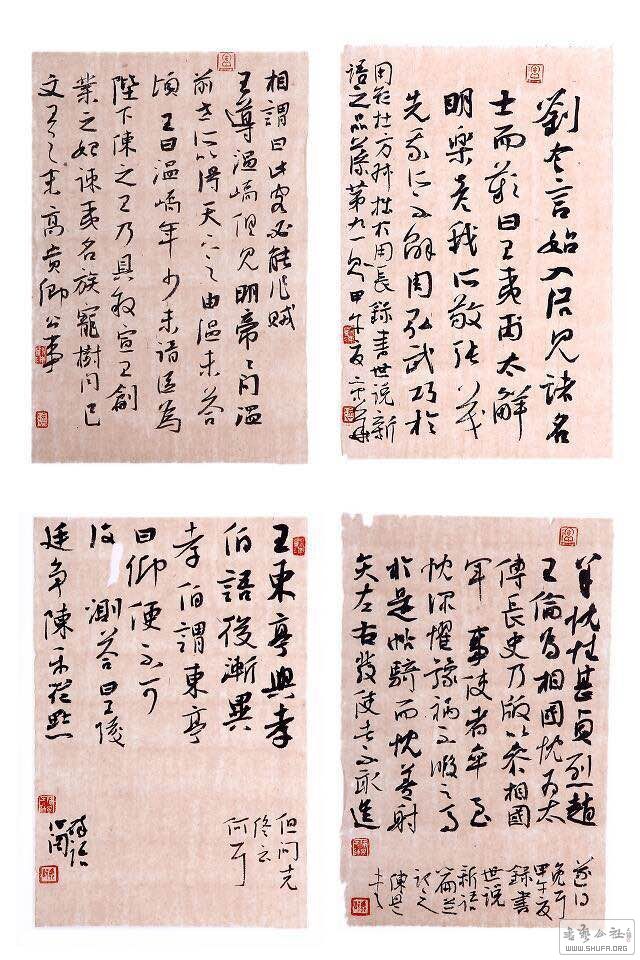 劉令言始入洛見諸名
士而歎曰王夷甫太鮮
明樂彥我所敬張茂
先我所不解周弘武巧於
用短杜方叔拙於用長錄書世說新
語之品藻第九一則甲午夏
相謂曰此客必能作賊
王導溫嶠俱見明帝帝問溫
前世所以得天下之由溫未答
頃王曰溫嶠年少未諳臣為
陛下陳之王乃具敘宣王創
業之始誅夷名族寵樹同己
文王之末高貴鄉公事
羊忱性甚貞烈趙
王倫為相國忱為太
傅長史乃版以參相國
軍事使者卒至
忱深懼豫禍不暇馬
於是帖騎而忱善射
矢左右發使者不敢進
遂得
免
甲午夏
錄書
世說
新語
王東亭與孝
伯語後漸異
孝伯謂東亭
曰卿便不可
復測答曰王陵
廷爭陳平從默
但問克
終云
何耳
WWW.SHUFA.ORG